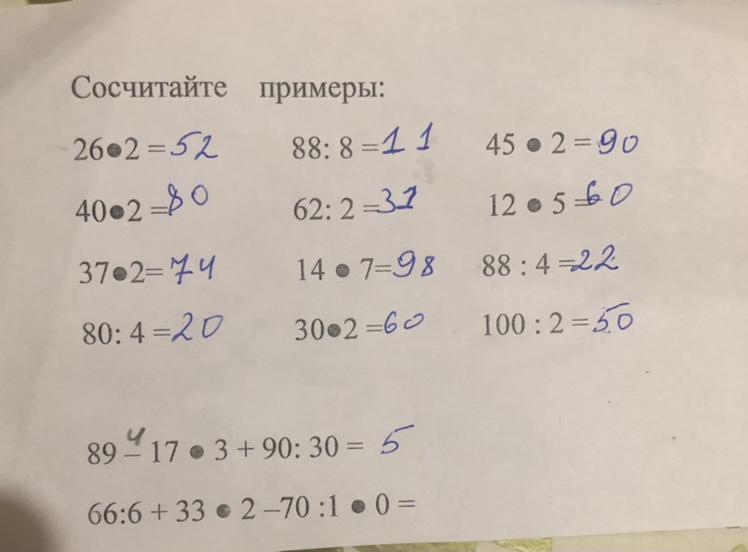 Сосчитайте примеры:
26•2 = 52 88: 8 = 11 45 • 2 = 90
40•2 = 80 62: 2 = 31 12 • 5 = 60
37•2= 74 14 • 7= 98 88 : 4 = 22
80: 4 = 20 30•2 = 60 100 : 2 = 50
4
89 – 17 • 3 + 90: 30 = 5
66:6 + 33 • 2 –70 :1 • 0 =